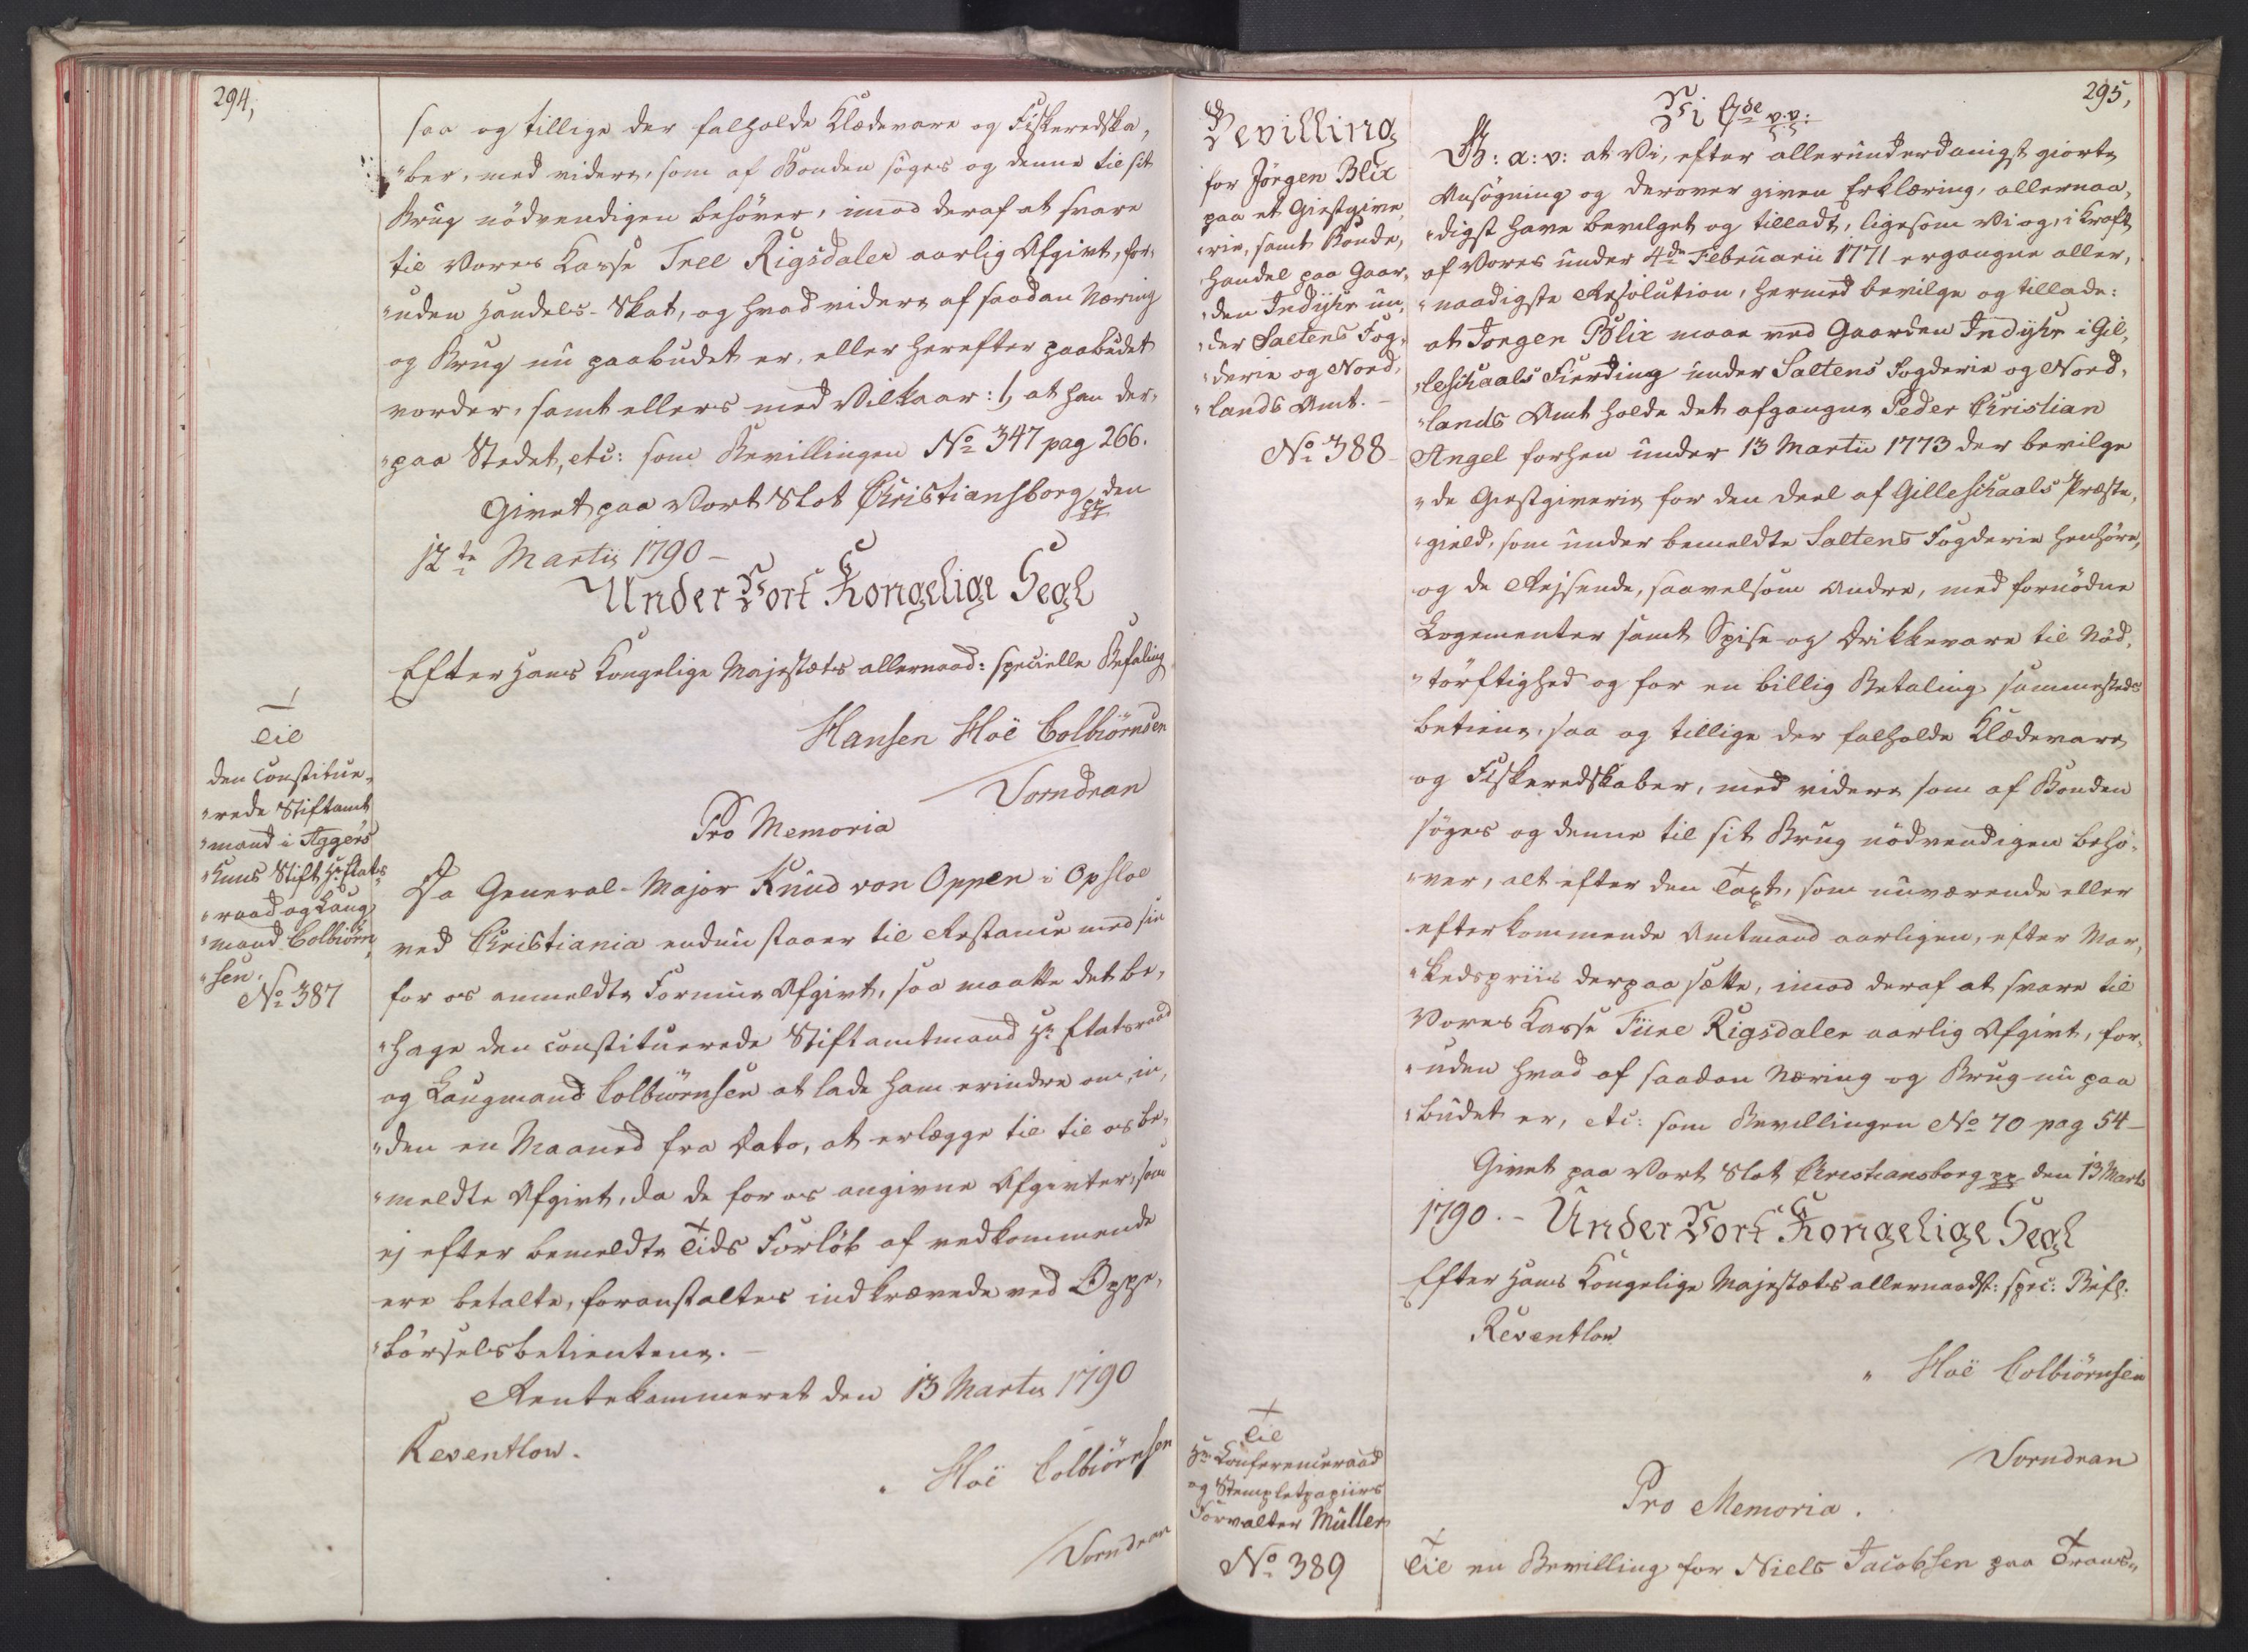 294,
saa og tillige der falholde Klædevare og Fiskeredska„
„ber, med videre, som af Bonden söges og denne til sit
Brug nödvendigen behöver, imod deraf at svare
til Vores Kasse Tree Rigsdaler aarlig Afgivt, for„
„uden Handels-Skat, og hvad videre af saadan Næring
og Brug nu paabudet er, eller herefter paabudet
vorder, samt ellers med Vilkaar: 1, at han der„
„paa Stedet, etc: som Bevillingen No 347 pag 266.
Givet paa Vort Slot Christiansborg pp den
12te Martii 1790 –
Under Vort Kongelige Segl
Efter Hans Kongelige Majestæts allernaad: specielle Befaling
Hansen Hoë Colbiörnsen
Vorndran
Til
den Constitue„
„rede Stiftamt
„mand i Aggers
„huus Stift Hr. Etats„
„raad og Laug
„mand Colbiörn„
„sen.
No 387
Pro Memoria
Da General-Major Knud von Oppen i Opsloe
ved Christiania endnu staaer til Restance med sin
for os anmeldte Formue Afgivt, saa maatte det be„
„hage den constituerede Stiftamtmand Hr. Etatsraad
og Laugmand Colbiörnsen at lade ham erindre om, in„
„den en Maaned fra Dato, at erlægge til til os be„
„meldte Afgivt, da de for os angivne Afgivter, som
ej efter bemeldte Tids Forlöb af vedkommende
ere betalte, foranstaltes indkrævede ved Oppe„
„börselsbetientene. –
Rentekammeret den 13 Martii 1790
Reventlow.
„ Hoë Colbiörnsen
Vorndran
295,
Bevilling
for Jörgen Blix
paa et Giestgive„
„rie, samt Bonde„
„handel paa Gaar„
„den Indyhr un„
„der Saltens Fog„
„derie og Nord„
„lands Amt. –
No 388 –
Vi C 7de v. v:
G: a: v: at Vi, efter allerunderdanigst giorte
Ansögning og derover given Erklæring, allernaa„
„digst have bevilget og tilladt, ligesom Vi og, i Kraft
af Vores under 4de Februarii 1771 ergangne aller„
„naadigste Resolution, hermed bevilge og tillade:
at Jorgen Blix maae ved Gaarden Indyhr i Gil„
„leschaals Fierding under Saltens Fogderie og Nord„
„lands Amt holde det afgangne Peder Christian
Angel forhen under 13 Martii 1773 der bevilge
„de Giestgiverie for den Deel af Gilleschaals Præste„
„gield, som under bemeldte Saltens Fogderie henhöre,
og de Rejsende, saavelsom Andre, med fornödne
Logementer samt Spise- og Drikkevare til Nöd„
„törftighed og for en billig Betaling sammesteds
betiene, saa og tillige der falholde Klædevare
og Fiskeredskaber, med videre som af Bonden
söges og denne til sit Brug nödvendigen behö„
„ver, alt efter den Taxt, som nuværende eller
efterkommende Amtmand aarligen, efter Mar„
„kedspriis derpaa sætte, imod deraf at svare til
Vores Kasse Fiire Rigsdaler aarlig Afgivt, for„
„uden hvad af saadan Næring og Brug nu paa
„budet er, etc: som Bevillingen No 70 pag 54 –
Givet paa Vort Slot Christiansborg pp den 13 Marts
1790. – Under Vort Kongelige Segl
Efter Hans Kongelige Majestæts allernaadst: spec: Befl.
Reventlow
„ Hoë Colbiörnsen
Vorndran
Til
Hr. Conferenceraad
og Stempletpapiirs
Forvalter Müller
No 389
Pro Memoria.
Til en Bevilling for Niels Jacobsen paa Trans„